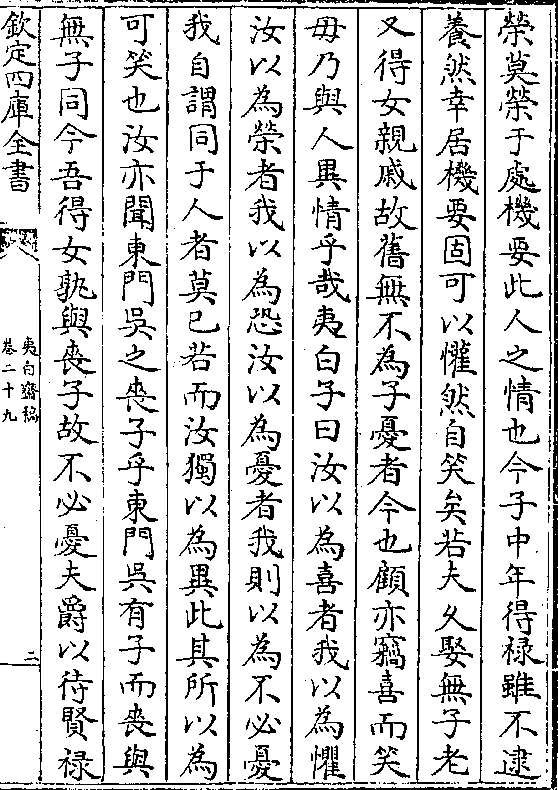 榮莫榮于處機要此人之情也今子中年得祿雖不逮
養然幸居機要固可以懽然自笑矣若夫久娶無子老
又得女親戚故舊無不為子憂者今也顧亦竊喜而笑
毋乃與人異情乎哉夷白子曰汝以為喜者我以為懼
汝以為榮者我以為恐汝以為憂者我則以為不必憂
我自謂同于人者莫已若而汝獨以為異此其所以為
可笑也汝亦聞東門吳之喪子乎東門吳有子而喪與
無子同今吾得女孰與喪子故不必憂夫爵以待賢祿
欽定四庫全書
夷白齋稿
卷二十九
二